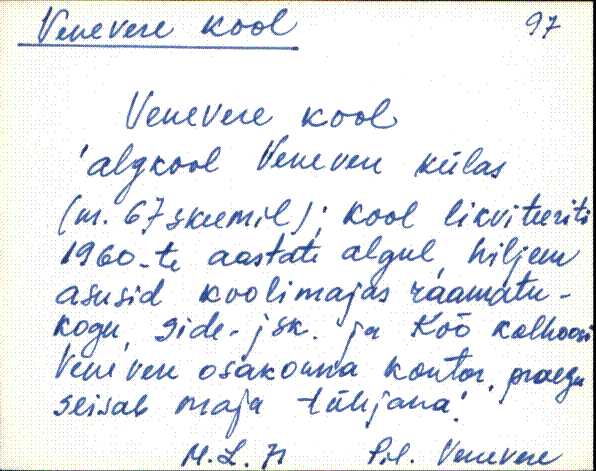 Venevere kool 97
Venevere kool
'algkool Venevere külas
(nr. 67 skeemil); kool likvideeriti
1960-te aastate algul, hiljem
asusid koolimajas raamatu-
kogu, side-jsk. ja Kõo kolhoosi
Venevere osakonna kontor, praegu
seisab maja tühjana'.
M.L. 71 Pil. Venevere